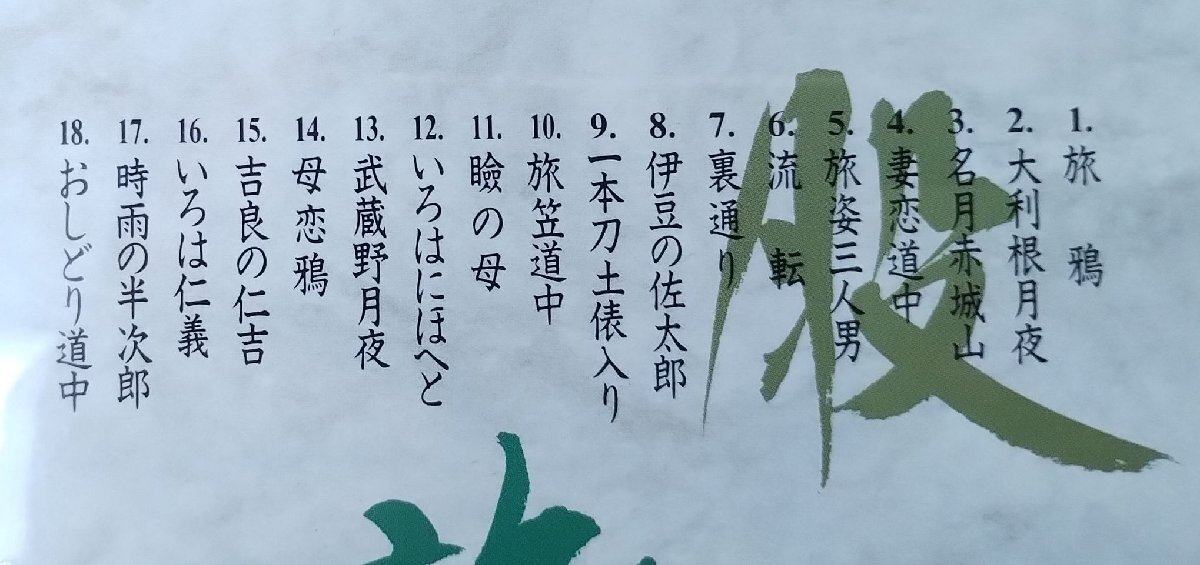 股
1. 旅 鴉
2. 大利根月夜
3. 名月赤城山
4. 妻恋道中
5. 旅姿三人男
6. 流 転
7. 裏通り
8. 伊豆の佐太郎
9. 一本刀土俵入り
10. 旅笠道中
11. 瞼の母
12. いろはにほへと
13. 武蔵野月夜
14. 母恋鴉
15. 吉良の仁吉
16. いろは仁義
17. 時雨の半次郎
18. おしどり道中